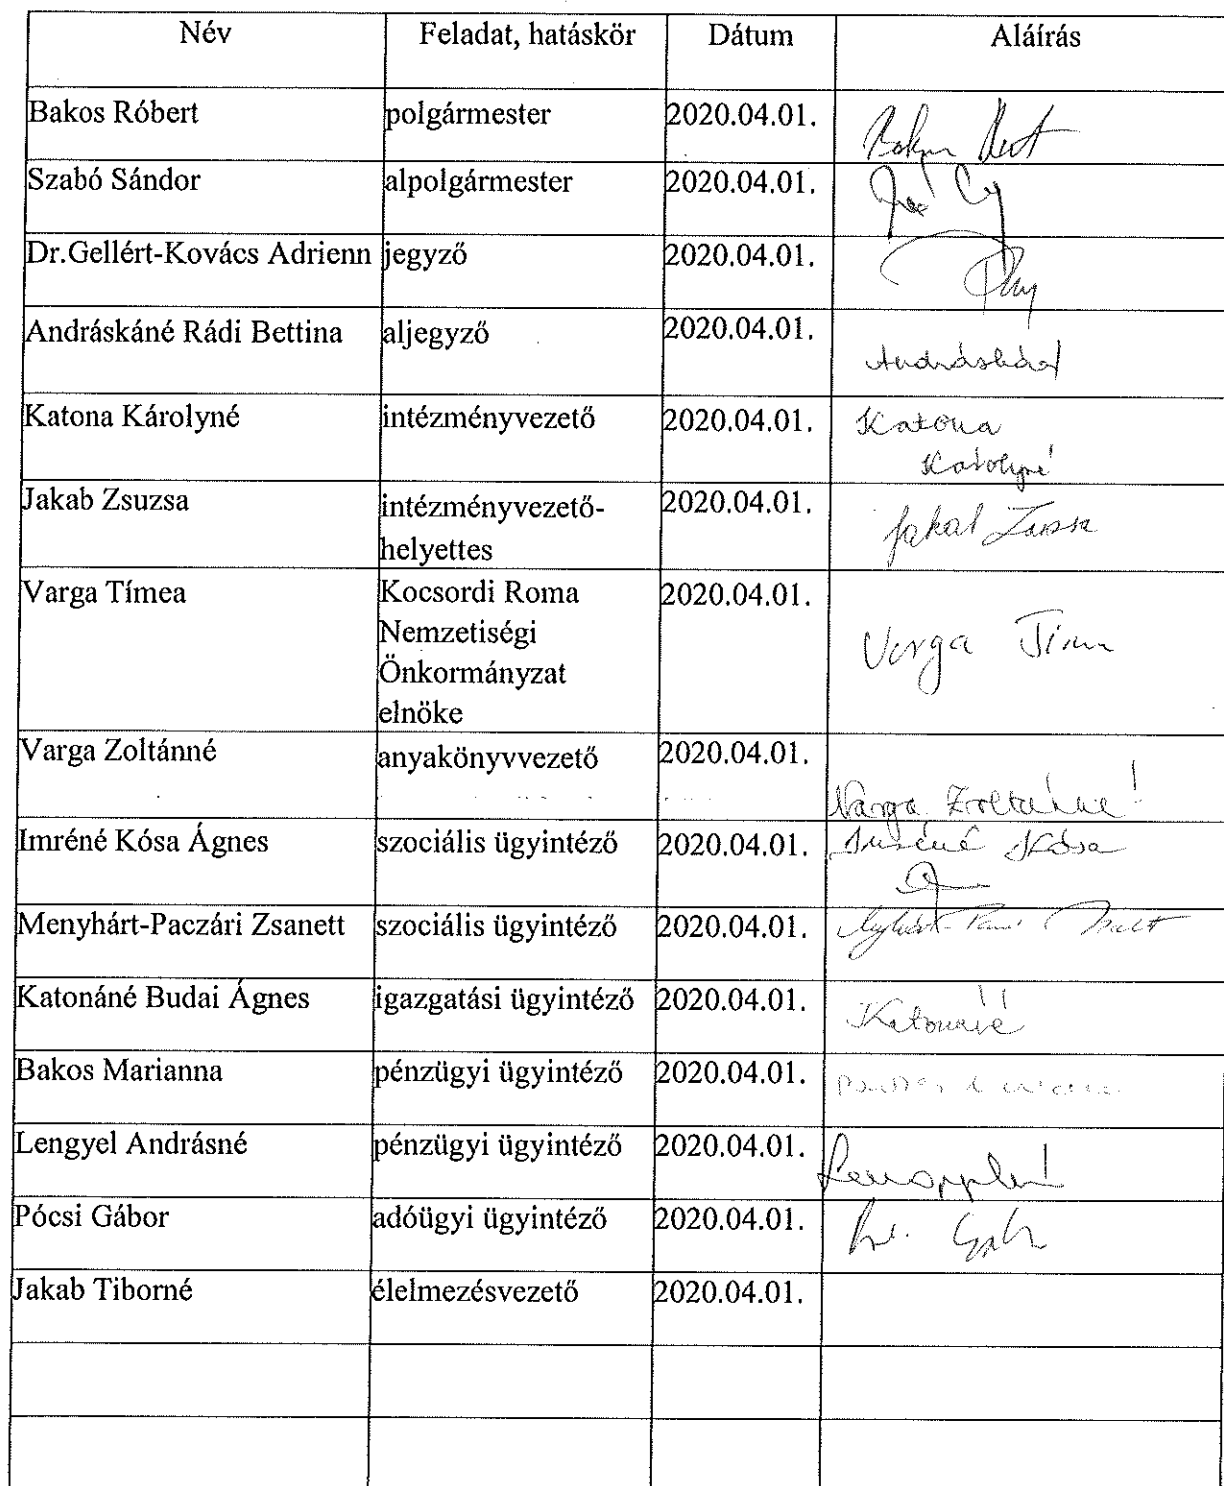 Név Feladat, hatáskör Dátum Aláírás
Bakos Róbert polgármester 2020.04.01.
Szabó Sándor alpolgármester 2020.04.01.
Dr.Gellért-Kovács Adrienn jegyző 2020.04.01.
Andráskáné Rádi Bettina aljegyző 2020.04.01.
Katona Károlyné intézményvezető 2020.04.01. Katona
Károlyné
Jakab Zsuzsa intézményvezető- 2020.04.01. Jakab
helyettes
Varga Tímea Kocsordi Roma 2020.04.01.
Nemzetiségi
Önkormányzat Varga
elnöke
Varga Zoltánné anyakönyvvezető 2020.04.01.
Varga Zoltánné
Imréné Kósa Ágnes szociális ügyintéző 2020.04.01. Imréné Kósa
Menyhárt-Paczári Zsanett szociális ügyintéző 2020.04.01.
Katonáné Budai Ágnes igazgatási ügyintéző 2020.04.01. Katonáné
Bakos Marianna pénzügyi ügyintéző 2020.04.01.
Lengyel Andrásné pénzügyi ügyintéző 2020.04.01.
Pócsi Gábor adóügyi ügyintéző 2020.04.01.
Jakab Tiborné élelmezésvezető 2020.04.01.